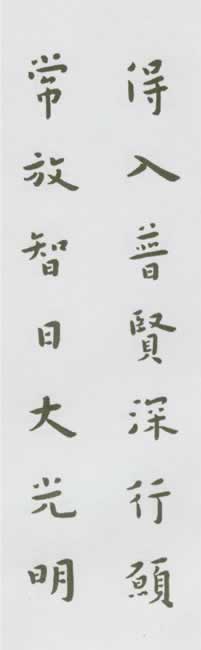 得入普賢深行願
常放智日大光明